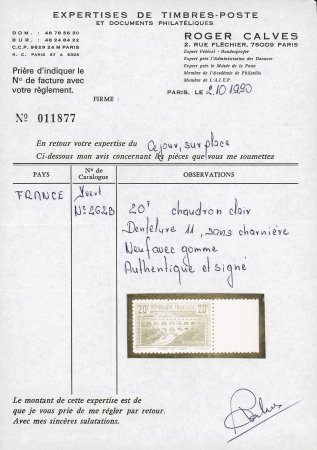 EXPERTISES DE TIMBRES-POSTE
ET DOCUMENTS PHILATÉLIQUES
DOM : 48 78 56 30
BUR : 48 24 84 22
C.C.P. 9629 24 M PARIS
N. RC PARIS 67 A 6305
ROGER CALVES
2, RUE FLÉCHIER, 75009 PARIS
Expert Fédéral - Bundesprüfer
Expert près l'Administration des Douanes
Expert près le Musée de la Poste
Membre de l'Académie de Philatélie
Membre de l'A.I.E.P.
Prière d'indiquer le
No de facture avec
votre règlement.
FIRME :
PARIS, LE 2.10.1990
No 011877
En retour votre expertise du Ce jour, sur place
Ci-dessous mon avis concernant les pièces que vous me soumettez
PAYS
No de Catalogue
OBSERVATIONS
FRANCE
Yvert
No 262B
20F chaudron clair
Dentelure 11, sans charnière
Neuf avec gomme
Authentique et signé
20F
20F
Le montant de cette expertise est de
que je vous prie de me régler par retour.
Avec mes sincères salutations.